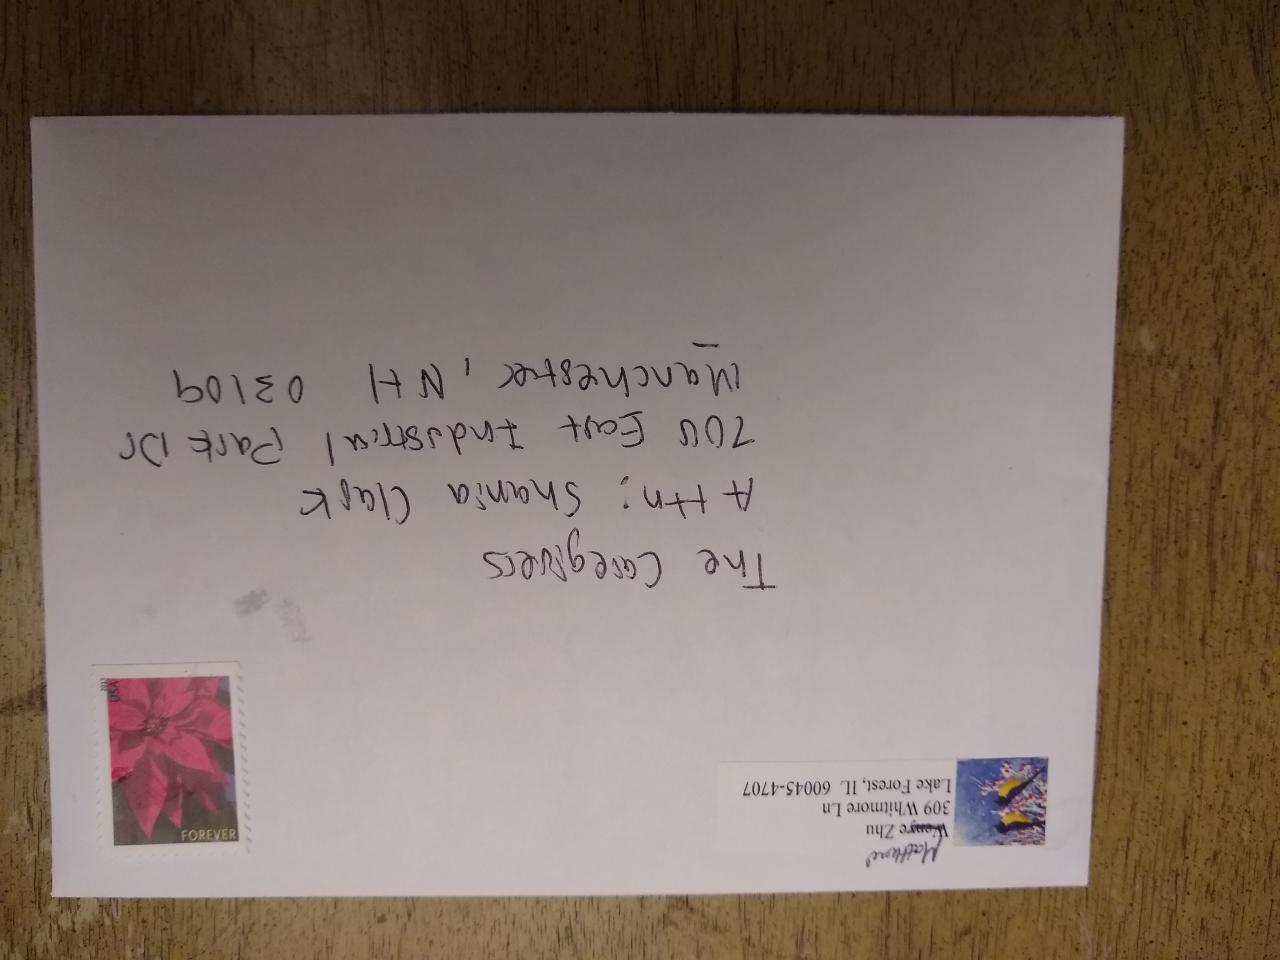 Matthew
Zhu
309 Whitmore Ln
Lake Forest, IL 60045-4707
USA
2013
FOREVER
The Caregivers
Attn: Shania Clark
700 East Industrial Park Dr
Manchester, NH 03109